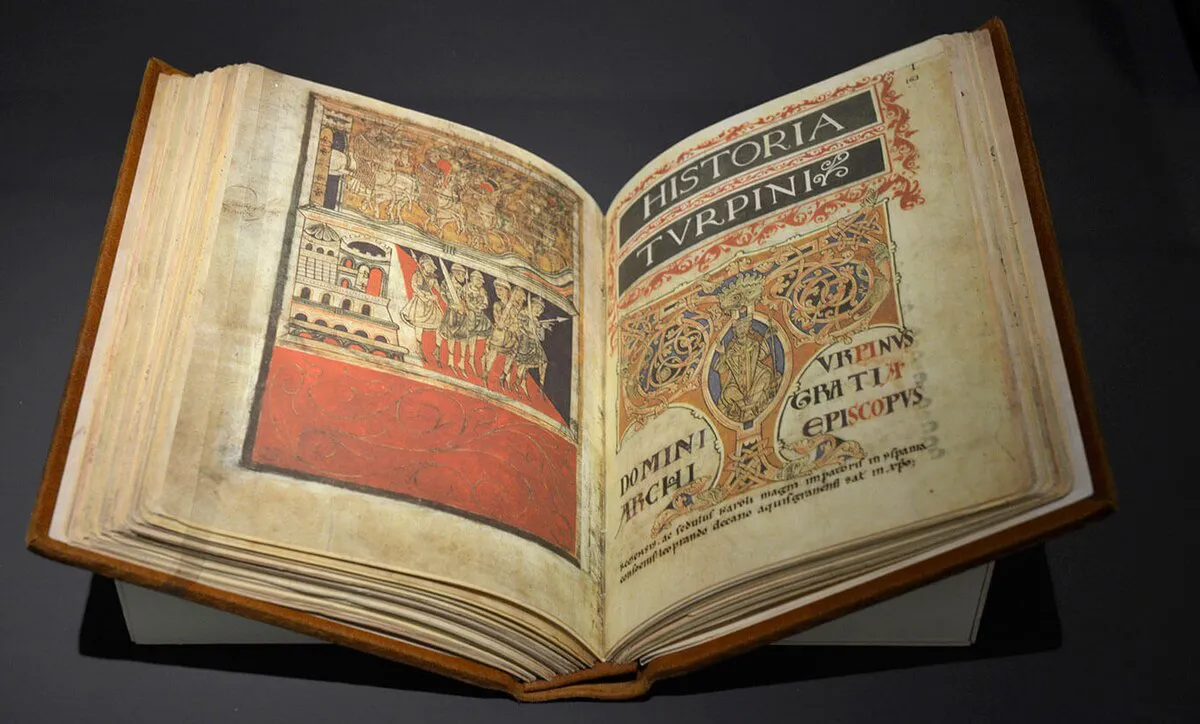 I
163
HISTORIA
TVRPINI
TVRPINVS
DOMINI GRATIA
ARCHI EPISCOPVS
remensis, ac sedulus karoli magni impatoris in yspania
consocius leoprando decano aquisgranensis salt in xpo;